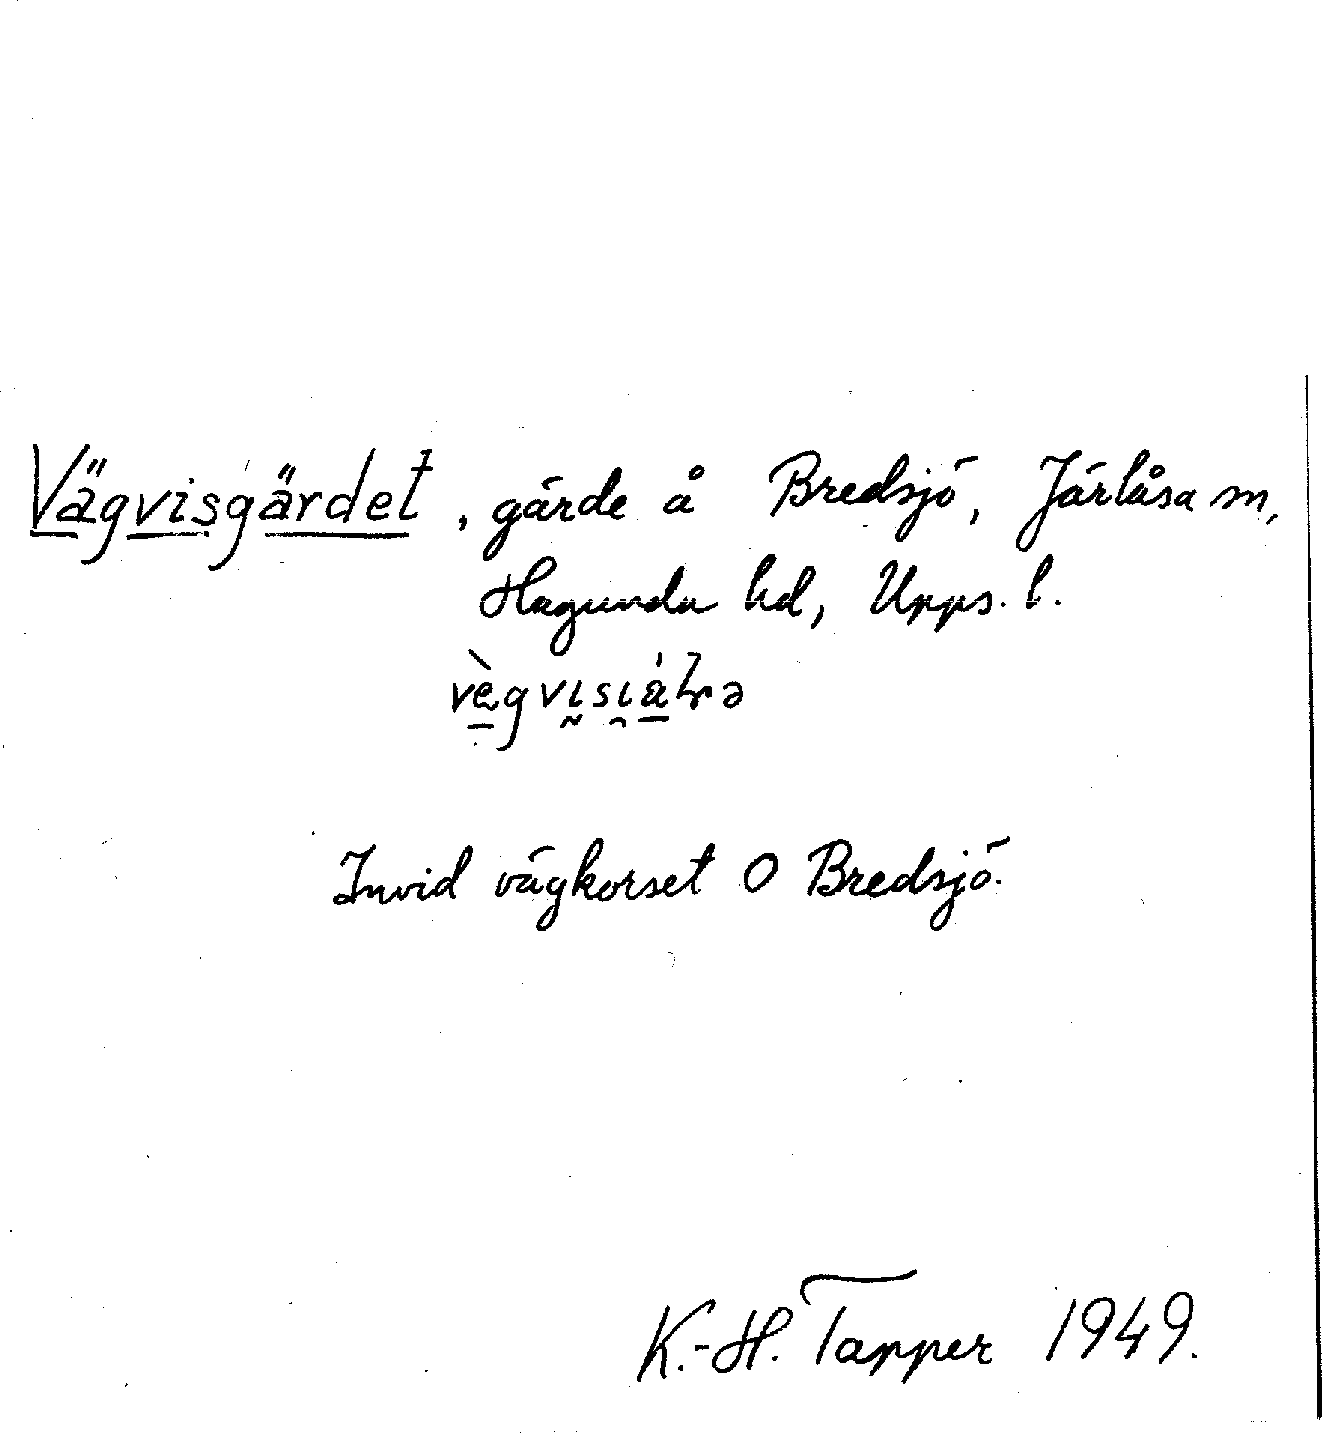 Vägvisgärdet, gärde å Bredsjö, Järlåsa sn,
Hagunda hd, Upps. l.
Invid vägkorset O Bredsjö.
K.-H. Tapper 1949.